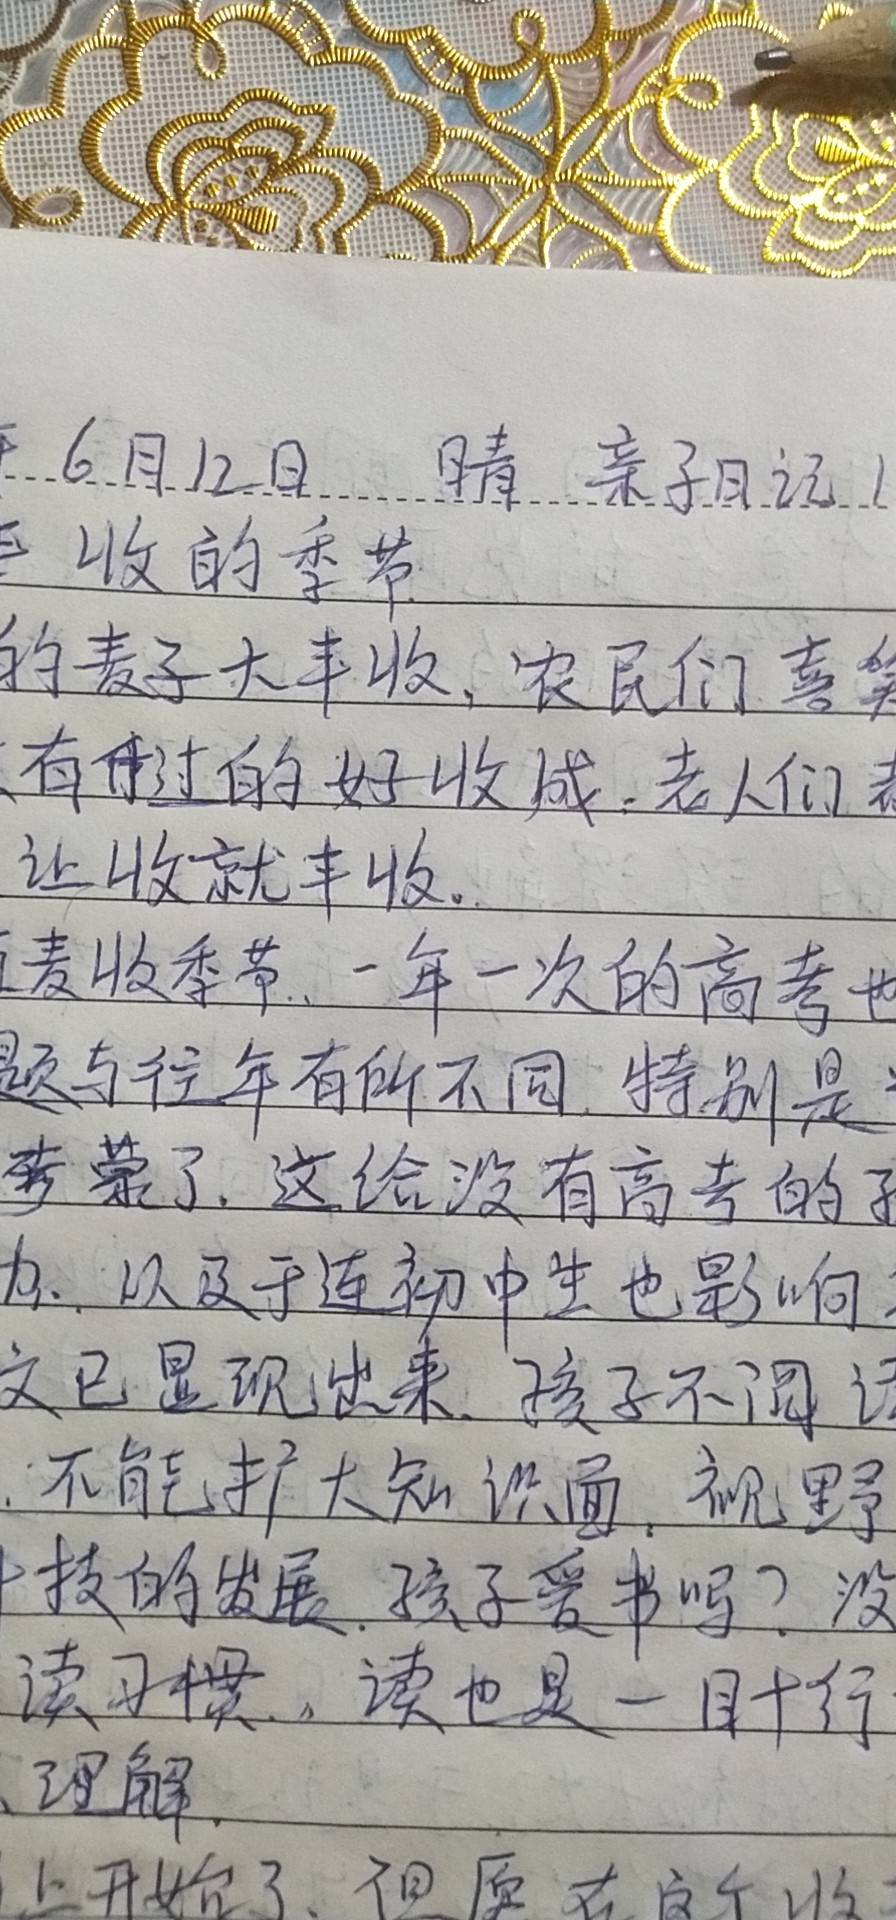 6月12日 晴 亲子日记
收的季节
的麦子大丰收,农民们喜笑
有过的好收成。老人们
让收就丰收。
麦收季节,一年一次的高考也
题与往年有所不同,特别是
了,这给没有高考的孩
力,以及于连初中生也影响
文已显现出来,孩子不阅读
,不能扩大知识面,视野
技的发展,孩子爱书吗?没
读习惯,读也是一目十行
理解
上开始了,但愿在这个收